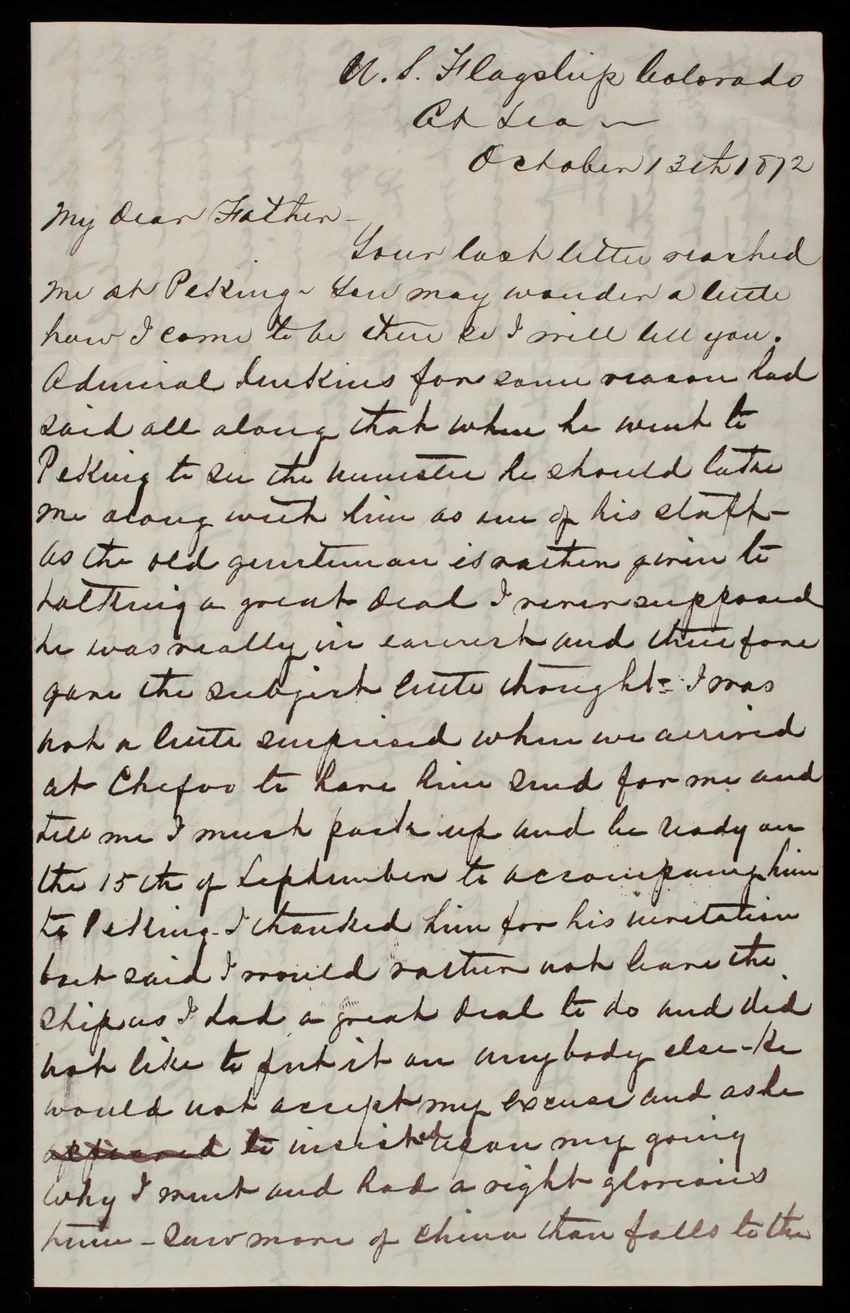 U. S. Flagship Colorado
At Sea
October 13th 1872
My Dear Father -
Your last letter reached
me at Peking - You may wonder a little
how I came to be there so I will tell you.
Admiral Jenkins for some reason had
said all along that when he went to
Peking to see the minister he should take
me along with him as one of his staff -
as the old gentleman is rather given to
talking a great deal I never supposed
he was really in earnest and therefore
gave the subject little thought - I was
not a little surprised when we arrived
at Chefoo to have him send for me and
tell me I must pack up and be ready on
the 15th of September to accompany him
to Peking - I thanked him for his invitation
but said I would rather not leave the
ship as I had a great deal to do and did
not like to put it on anybody else - He
would not accept my excuse and as he
appeared to insisted upon my going
why I went and had a right glorious
time - saw more of China than falls to the